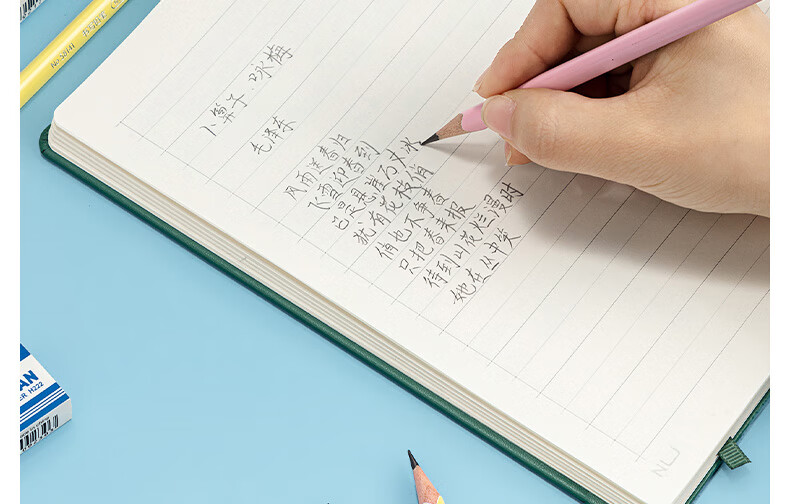 卜算子·咏梅
毛泽东
风雨送春归
飞雪迎春到
已是悬崖百丈冰
犹有花枝俏
俏也不争春
只把春来报
待到山花烂漫时
她在丛中笑
No.58141
AN
ER H222
NLJ